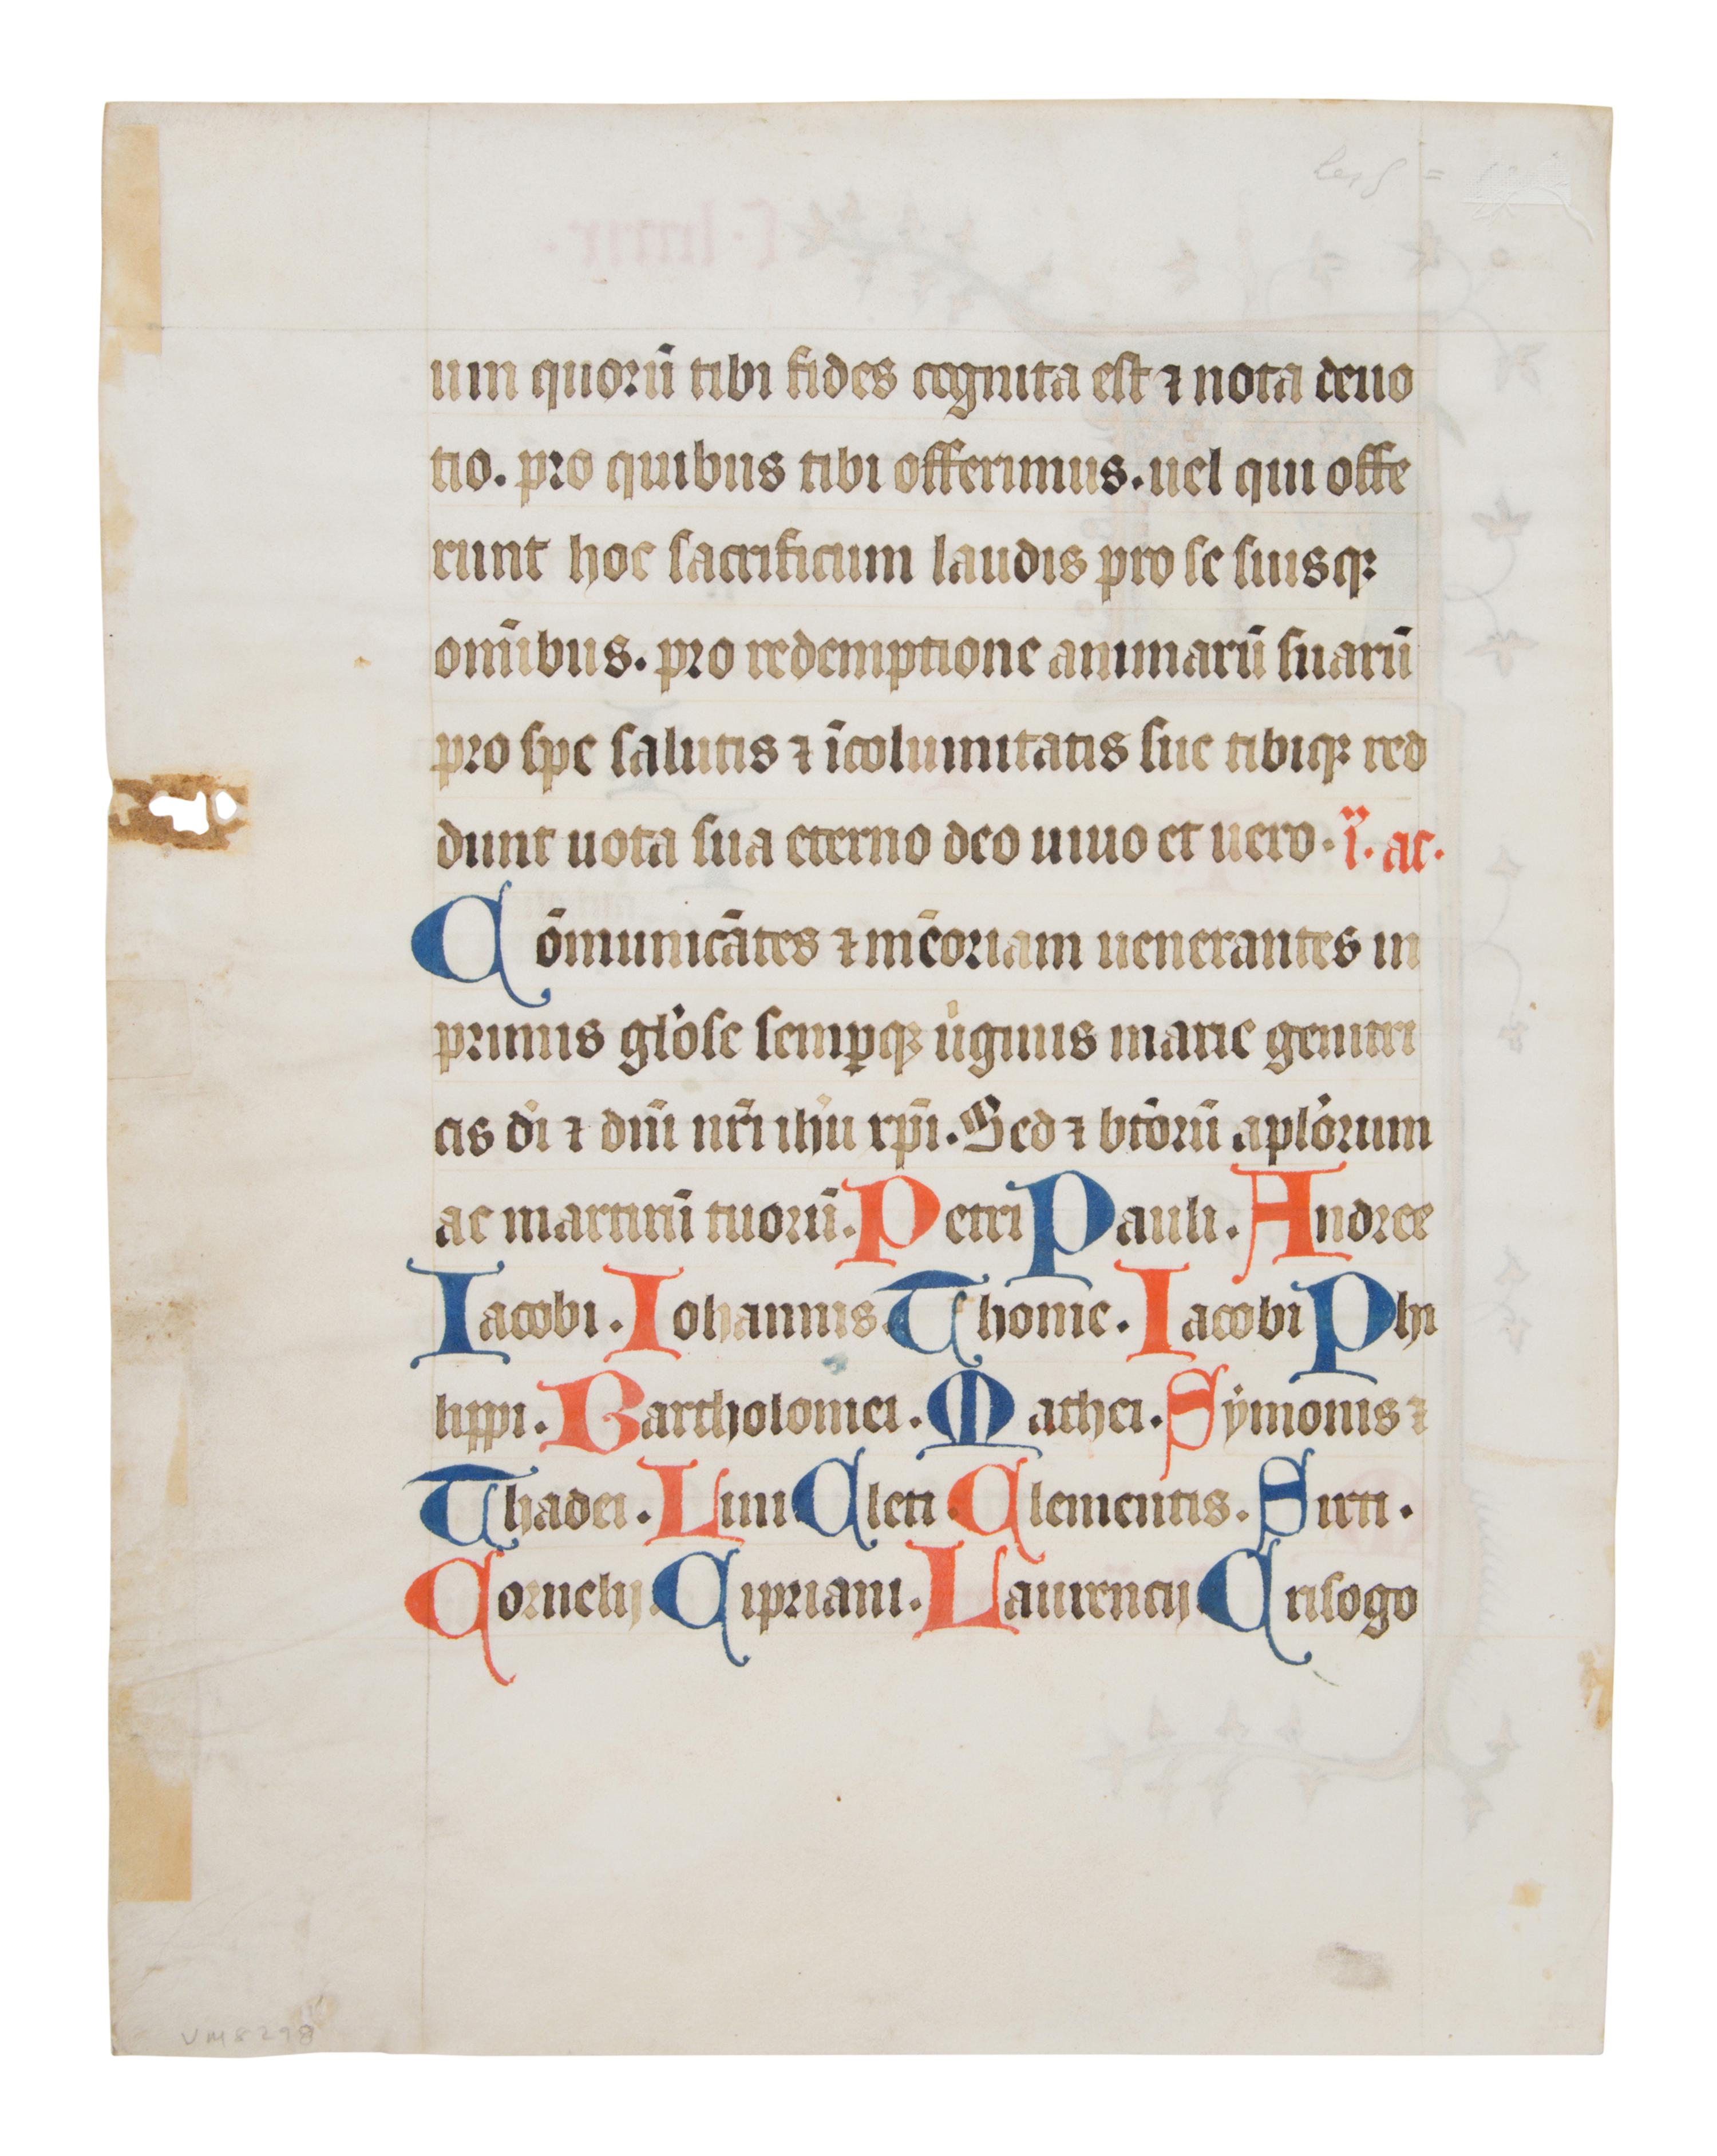 um quorū tibi fides cognita est ⁊ nota deuo
tio. pro quibus tibi offerimus. uel qui offe
runt hoc sacrificium laudis pro se suisqꝫ
omībus. pro redemptione animarū suarū
pro spe salutis ⁊ īcolumitatis sue tibiqꝫ red
dunt uota sua eterno deo uiuo et uero. ac.
Cōmunicātes ⁊ mēoriam uenerantes in
primis gl'ose semꝑqꝫ uiginis marie genitri
cis di ⁊ dn̄i nr̄i ihu xp̄i. Sed ⁊ btōrū apl'orum
ac martirū tuorū. Petri Pauli. Andree
Iacobi. Iohannis. Thome. Iacobi Phi
lippi. Bartholomei. Mathei. Sẏmonis ⁊
Thadei. Lini Cleti. Clementis. Sixti.
Cornelij. Cipriani. Laurencij Crisogo
VM8298